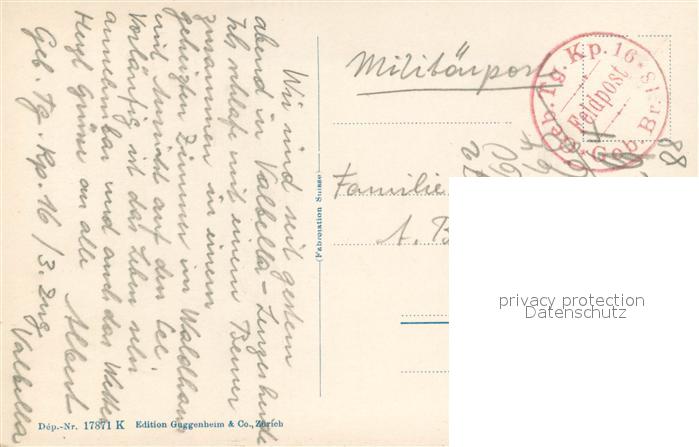 Wir sind seit gestern
abend in Valbella-Lenzerheide
Ich schlafe mit einem Berner
zusammen in einem
geheizten Zimmer im Waldhaus
mit Aussicht auf den See
Vorläufig ist das Leben sehr
annehmbar und auch das Wetter
Herzl Grüsse an alle Albert
Geb. Tg. Kp. 16 / 3. Zug
Valbella
Militärpost
Geb. Tg. Kp. 16
Feldpost
Geb. Br.
Familie
A. B
88
(Fabrication Suisse)
privacy protection
Datenschutz
Dép.-Nr. 17871 K Edition Guggenheim & Co., Zürich